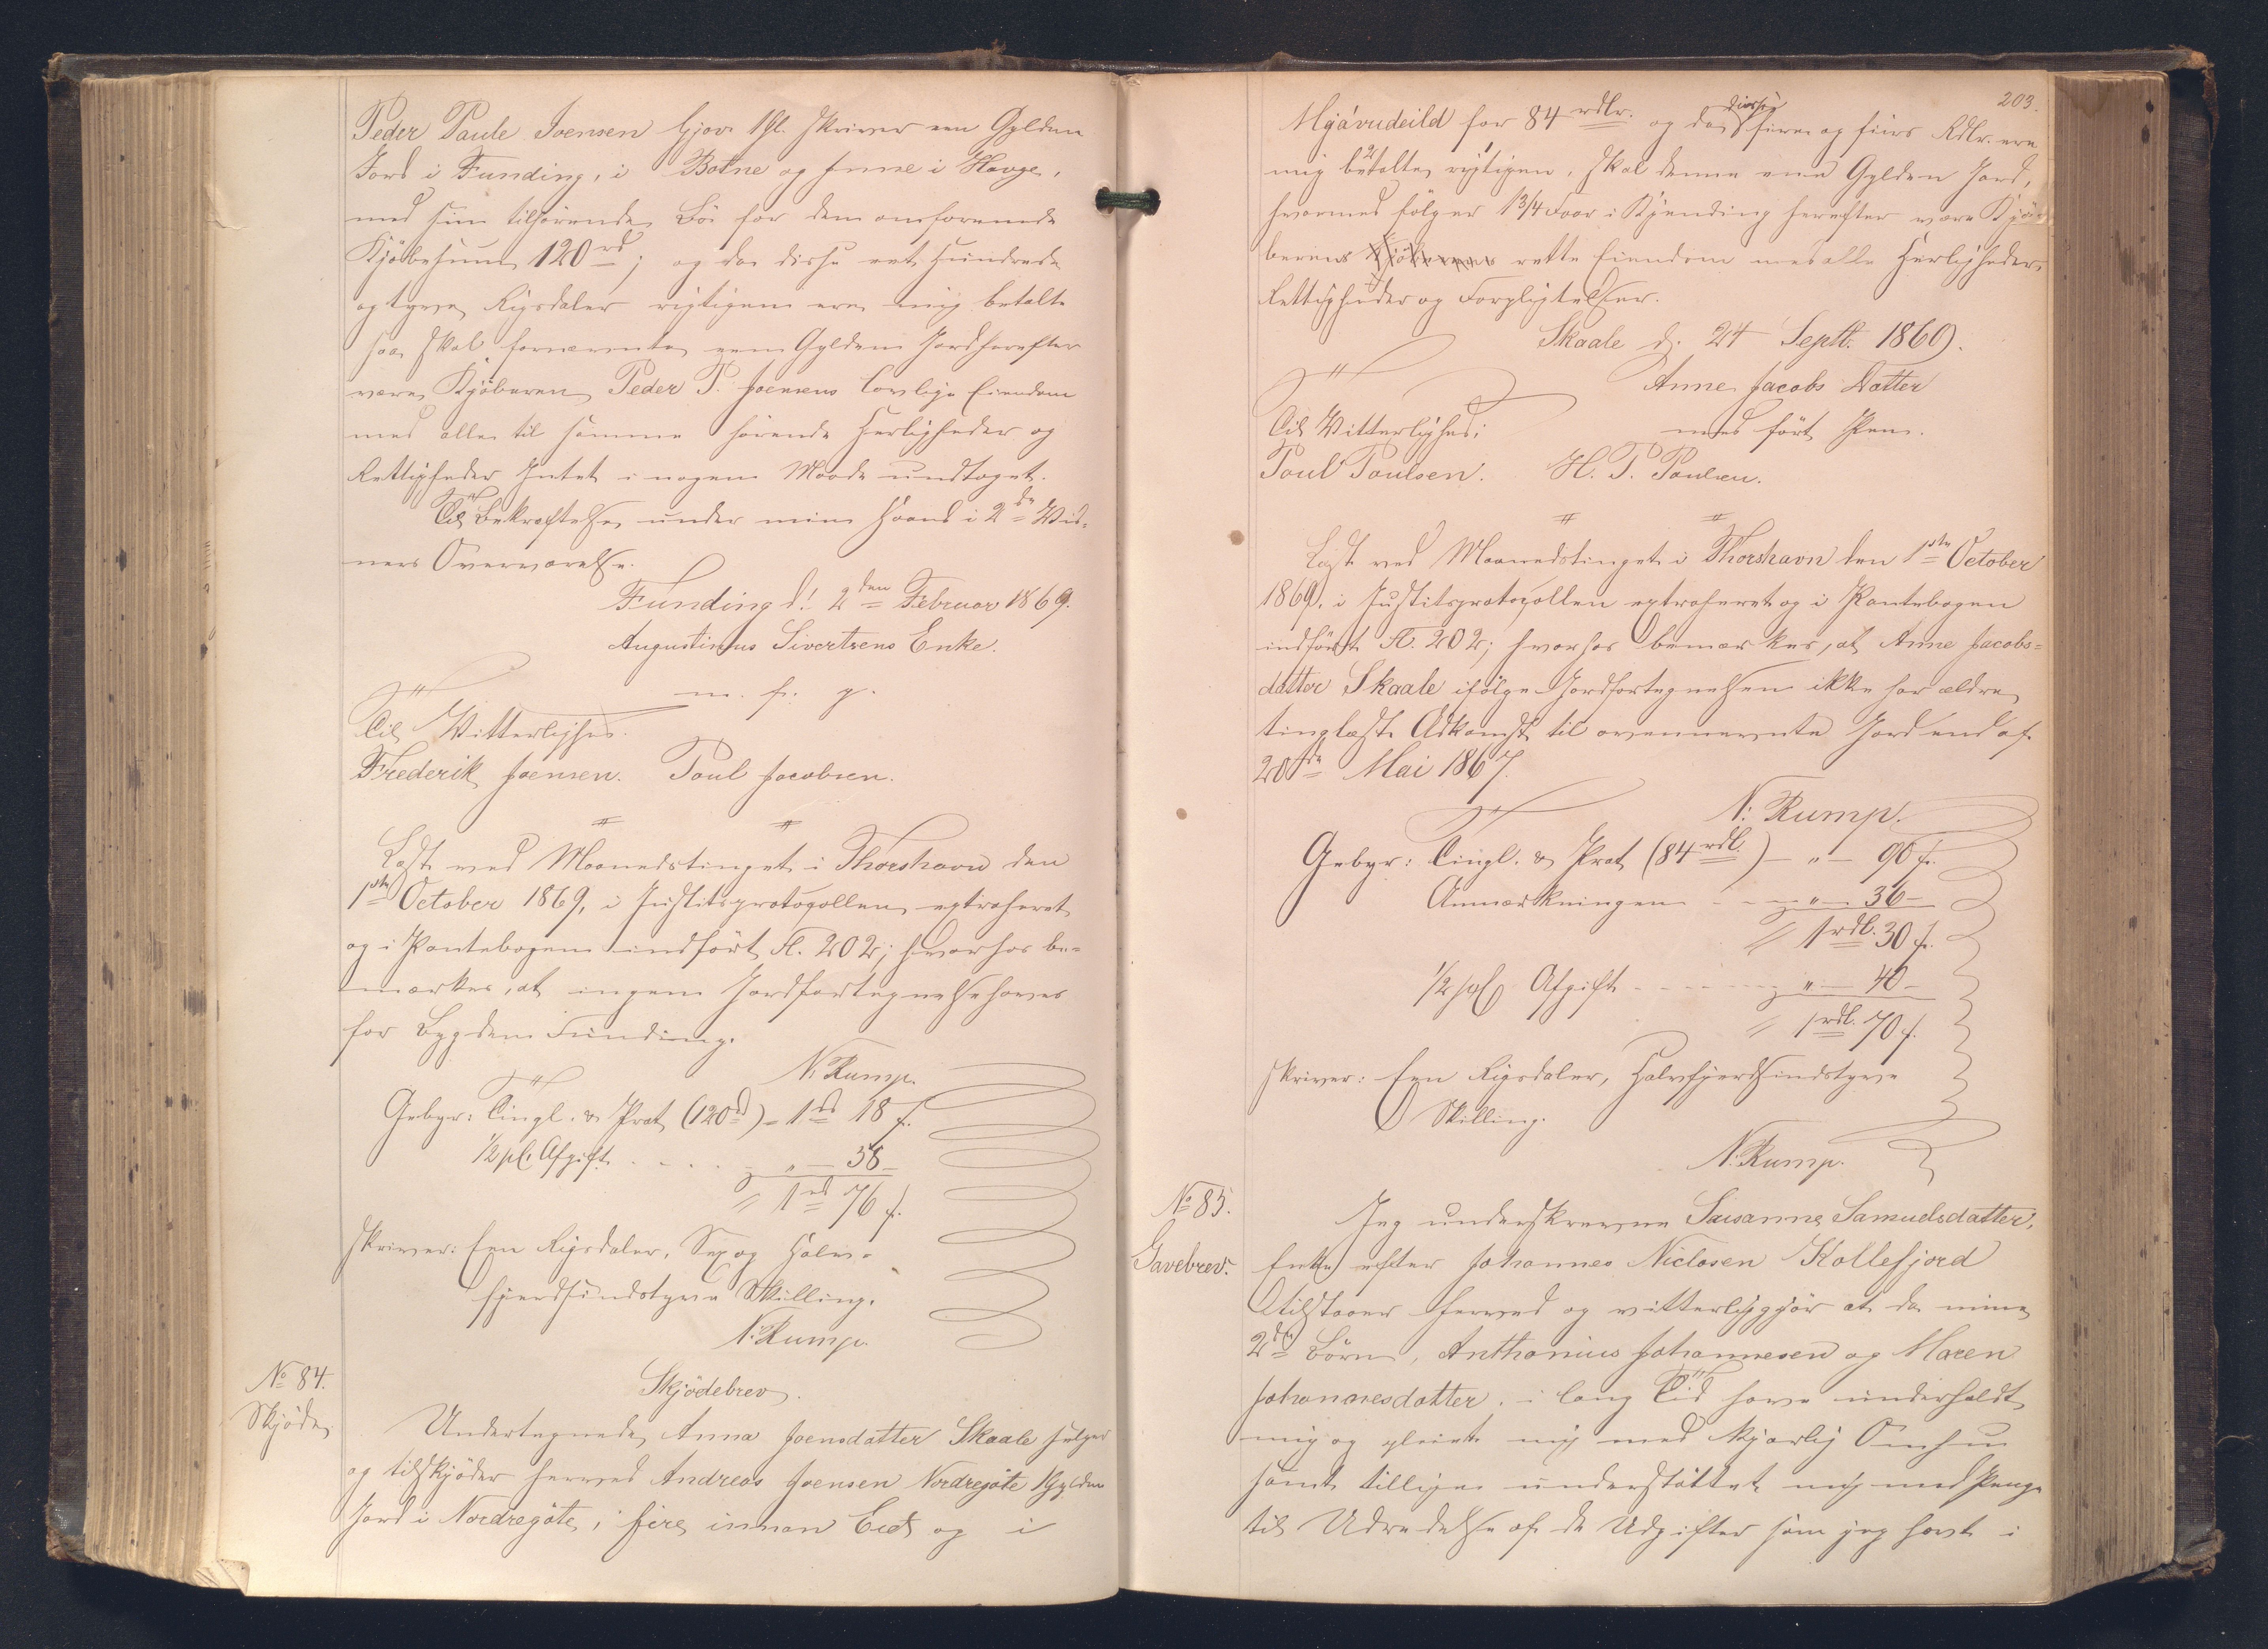 Peder Paule Joensen Gjov 1 Gl. skriver een Gylden
Jord i Funding, i Botne og Inne i Hauge,
med sin tilhørende Bø for den omforenede
Kjøbesum 120 rd; og da disse eet Hundrede
og tyve Rigsdaler rigtigen ere mig betalte
saa skal fornævnte een Gylden Jord herefter
være Kjøberen Peder P. Joensens lovlige Eiendom
med alle til samme hørende Herligheder og
Rettigheder Intet i nogen Maade undtaget.
Til Bekræftelse under min Haand i 2de Vid-
ners Overværelse.
Funding d. 2den Februar 1869.
Augustinus Sivertsens Enke.
m. f. p.
Til Vitterlighed.
Frederik Joensen. Poul Jacobsen.
Læst ved Maanedstinget i Thorshavn den
1ste October 1869, i Justitsprotocollen extraheret
og i Pantebogen indført Fl. 202; hvorhos be-
mærkes, at ingen Jordfortegnelse haves
for Bygden Funding.
N. Rump.
Gebyr: Tingl. & Prot (120 rd) - 1 rd 18 s.
1/2 pCt Afgift - - - - " - 58 -
= 1 rd 76 s.
skriver: Een Rigsdaler, Sex og Halv-
fjerdsindstyve Skilling.
N. Rump.
No 84.
Skjøde
Skjödebrev.
Undertegnede Anna Joensdatter Skaale sælger
og tilskjøder herved Andreas Joensen Nordregöte 1 Gylden
Jord i Nordregöte, i fire innan Eid og i
203.
Mjávudeild for 84 rdlr. og da disse fire og fiirs Rdlr. ere
mig betalte rigtigen, skal denne ene Gylden Jord,
hvormed følger 1 3/4 Foer i Kjending herefter være Kjö-
berens Kjöberens rette Eiendom med alle Herligheder,
Rettigheder og Forpligtelser.
Skaale d. 24 Septb. 1869.
Anne Jacobs Datter
med ført Pen.
Til Vitterlighed:
Poul Poulsen. H. P. Poulsen.
Læst ved Maanedstinget i Thorshavn den 1ste October
1869, i Justitsprotocollen extraheret og i Pantebogen
indført Fl. 202; hvorhos bemærkes, at Anne Jacobs-
datter Skaale ifølge Jordfortegnelsen ikke har ældre
tinglæst Adkomst til ovennævnte Jord end af
20de Mai 1867.
N. Rump.
Gebyr: Tingl. & Prot (84 rdl.) - " - 90 s.
Anmærkningen - - " - 36 -
= 1 rdl. 30 s.
1/2 pCt Afgift - - - - - " - 40 -
= 1 rdl. 70 s.
skriver: Een Rigsdaler, Halvfjerdsindstyve
Skilling.
N. Rump.
No 85.
Gavebrev.
Jeg underskrevne Susanne Samuelsdatter,
Enke efter Johannes Niclasen Kollefjord
tilstaaer herved og vitterliggjør at da mine
2de Børn, Anthonius Johannesen og Maren
Johannesdatter, i lang Tid have underholdt
mig og pleiet mig med kjærlig Omhu
samt tillige understøttet mig med Penge
til Udredelse af de Udgifter som jeg havt i